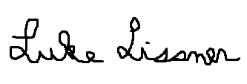 Luke Lissner